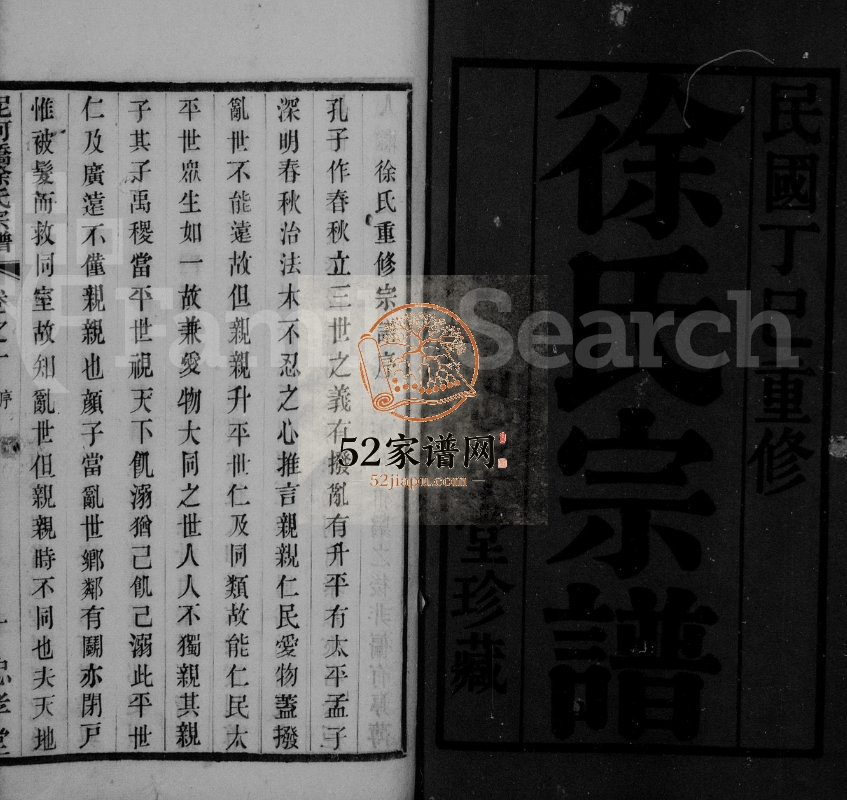 民國丁巳重修
徐氏宗譜
堂珍藏
徐氏重修宗譜序
孔子作春秋立三世之義有撥亂有升平有太平孟子
深明春秋治法本不忍之心推言親親仁民愛物蓋撥
亂世不能遠故但親親升平世仁及同類故能仁民太
平世眾生如一故兼愛物大同之世人人不獨親其親
子其子禹稷當平世視天下飢溺猶己飢己溺此平世
仁及廣遠不僅親親也顏子當亂世鄉鄰有鬭亦閉戸
惟被髮而救同室故知亂世但親親時不同也夫天地
泥河橋徐氏宗譜
卷之一
序
一
忠孝堂
FamilySearch
52家谱网
52jiapu.com